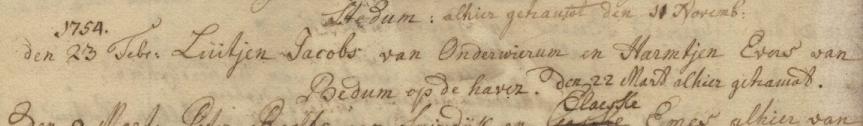 Stedum: alhier getrauwt den 11 Novemb:
1754.
den 23 Febr: Luitjen Jacobs van Onderwierum en Harmtjen Evers van
Bedum op de haven. den 22 Mart alhier getrauwt.
Claesske
Den Mart Pieter en Emes alhier van